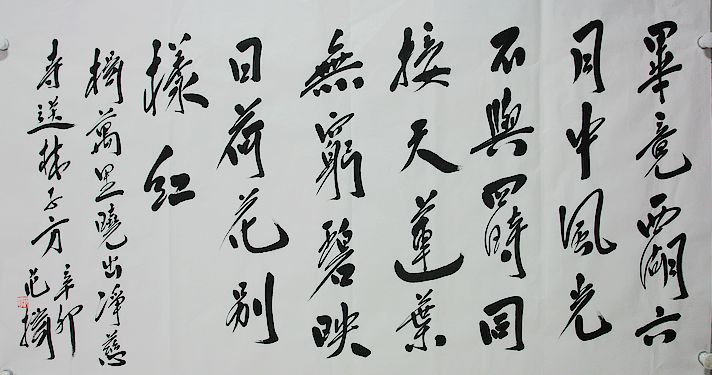 畢竟西湖六
月中風光
不與四時同
接天蓮葉
無窮碧映
日荷花別
樣紅
楊萬里曉出凈慈
寺送林子方
辛卯
范